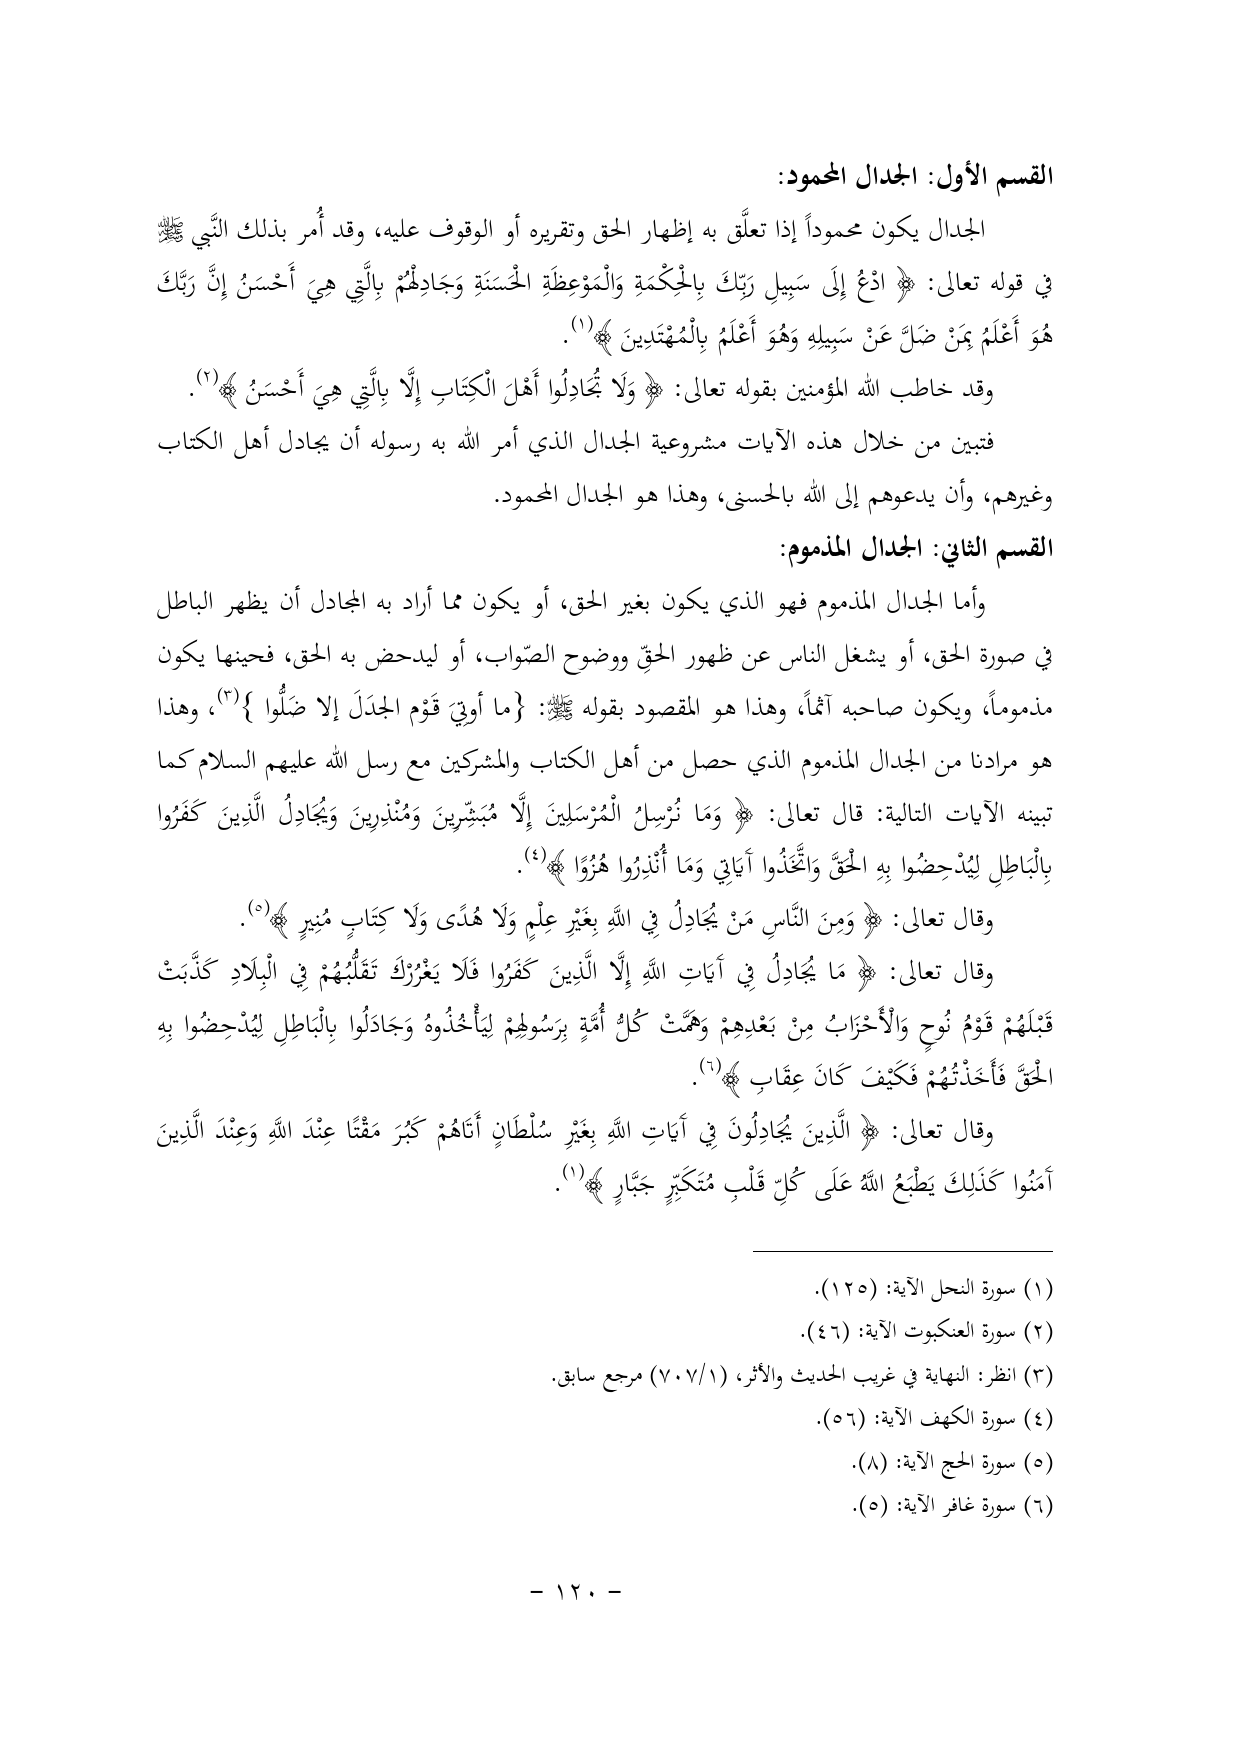 القسم الأول: الجدال المحمود:
الجدال يكون محموداً إذا تعلَّق به إظهار الحق وتقريره أو الوقوف عليه، وقد أُمر بذلك النَّبي ﷺ
في قوله تعالى: ﴿ ادْعُ إِلَى سَبِيلِ رَبِّكَ بِالْحِكْمَةِ وَالْمَوْعِظَةِ الْحَسَنَةِ وَجَادِلْهُمْ بِالَّتِي هِيَ أَحْسَنُ إِنَّ رَبَّكَ
هُوَ أَعْلَمُ بِمَنْ ضَلَّ عَنْ سَبِيلِهِ وَهُوَ أَعْلَمُ بِالْمُهْتَدِينَ ﴾(١).
وقد خاطب الله المؤمنين بقوله تعالى: ﴿ وَلَا تُجَادِلُوا أَهْلَ الْكِتَابِ إِلَّا بِالَّتِي هِيَ أَحْسَنُ ﴾(٢).
فتبين من خلال هذه الآيات مشروعية الجدال الذي أمر الله به رسوله أن يجادل أهل الكتاب
وغيرهم، وأن يدعوهم إلى الله بالحسنى، وهذا هو الجدال المحمود.
القسم الثاني: الجدال المذموم:
وأما الجدال المذموم فهو الذي يكون بغير الحق، أو يكون مما أراد به المجادل أن يظهر الباطل
في صورة الحق، أو يشغل الناس عن ظهور الحقِّ ووضوح الصّواب، أو ليدحض به الحق، فحينها يكون
مذموماً، ويكون صاحبه آثماً، وهذا هو المقصود بقوله ﷺ: {ما أوتِيَ قَوْم الجدَلَ إلا ضَلُّوا }(٣)، وهذا
هو مرادنا من الجدال المذموم الذي حصل من أهل الكتاب والمشركين مع رسل الله عليهم السلام كما
تبينه الآيات التالية: قال تعالى: ﴿ وَمَا نُرْسِلُ الْمُرْسَلِينَ إِلَّا مُبَشِّرِينَ وَمُنْذِرِينَ وَيُجَادِلُ الَّذِينَ كَفَرُوا
بِالْبَاطِلِ لِيُدْحِضُوا بِهِ الْحَقَّ وَاتَّخَذُوا آيَاتِي وَمَا أُنْذِرُوا هُزُوًا ﴾(٤).
وقال تعالى: ﴿ وَمِنَ النَّاسِ مَنْ يُجَادِلُ فِي اللَّهِ بِغَيْرِ عِلْمٍ وَلَا هُدًى وَلَا كِتَابٍ مُنِيرٍ ﴾(٥).
وقال تعالى: ﴿ مَا يُجَادِلُ فِي آيَاتِ اللَّهِ إِلَّا الَّذِينَ كَفَرُوا فَلَا يَغْرُرْكَ تَقَلُّبُهُمْ فِي الْبِلَادِ كَذَّبَتْ
قَبْلَهُمْ قَوْمُ نُوحٍ وَالْأَحْزَابُ مِنْ بَعْدِهِمْ وَهَمَّتْ كُلُّ أُمَّةٍ بِرَسُولِهِمْ لِيَأْخُذُوهُ وَجَادَلُوا بِالْبَاطِلِ لِيُدْحِضُوا بِهِ
الْحَقَّ فَأَخَذْتُهُمْ فَكَيْفَ كَانَ عِقَابِ ﴾(٦).
وقال تعالى: ﴿ الَّذِينَ يُجَادِلُونَ فِي آيَاتِ اللَّهِ بِغَيْرِ سُلْطَانٍ أَتَاهُمْ كَبُرَ مَقْتًا عِنْدَ اللَّهِ وَعِنْدَ الَّذِينَ
آمَنُوا كَذَلِكَ يَطْبَعُ اللَّهُ عَلَى كُلِّ قَلْبِ مُتَكَبِّرٍ جَبَّارٍ ﴾(١).
(١) سورة النحل الآية: (١٢٥).
(٢) سورة العنكبوت الآية: (٤٦).
(٣) انظر: النهاية في غريب الحديث والأثر، (٧٠٧/١) مرجع سابق.
(٤) سورة الكهف الآية: (٥٦).
(٥) سورة الحج الآية: (٨).
(٦) سورة غافر الآية: (٥).
- ١٢٠ -